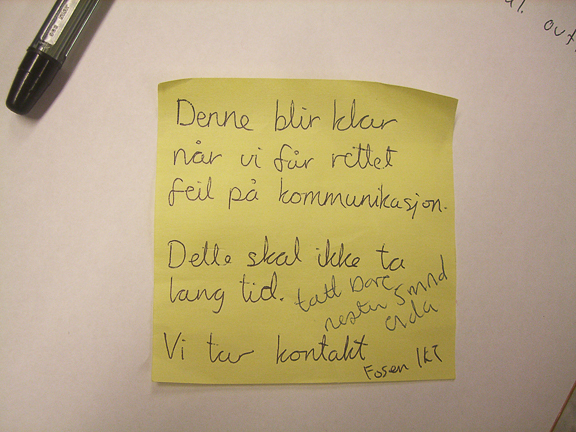 Denne blir klar
når vi får rettet
feil på kommunikasjon.
Dette skal ikke ta
lang tid.
tatt bare
nesten 5 mnd
enda
Vi tar kontakt
Fosen IKT